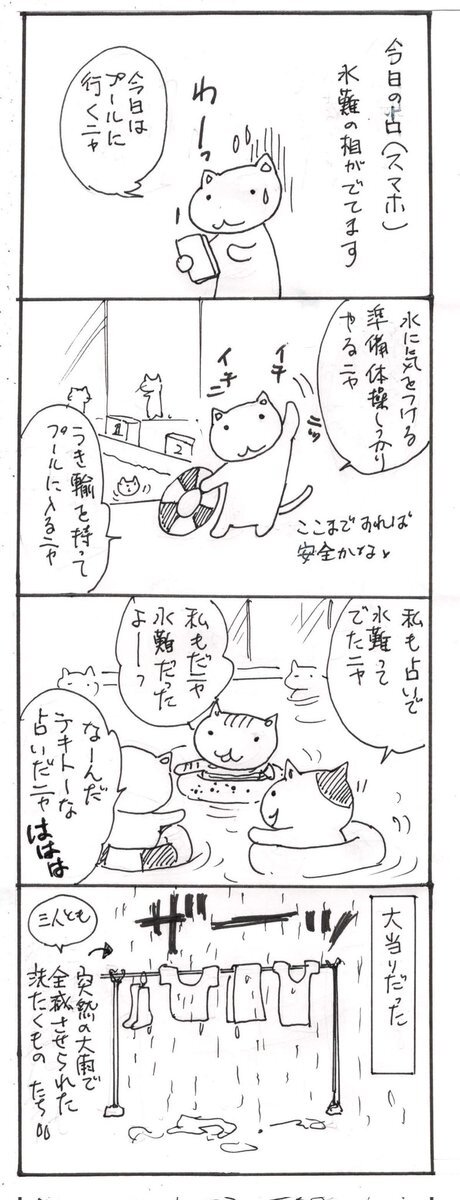 今日の占(スマホ)
水難の相がでてます
わーっ
今日は
プールに
行くニャ
水に気をつける
準備体操しっかり
やるニャ
イチ
ニッ
イチ
ニ
ここまですれば
安全かな
1
2
うき輪を持って
プールに入るニャ
私も占いで
水難って
でたニャ
私もだニャ
水難だった
よーっ
なーんだ
テキトーな
占いだニャ
ははは
大当りだった
ザーッ
三人とも
突然の大雨で
全滅させられた
洗たくもの たち